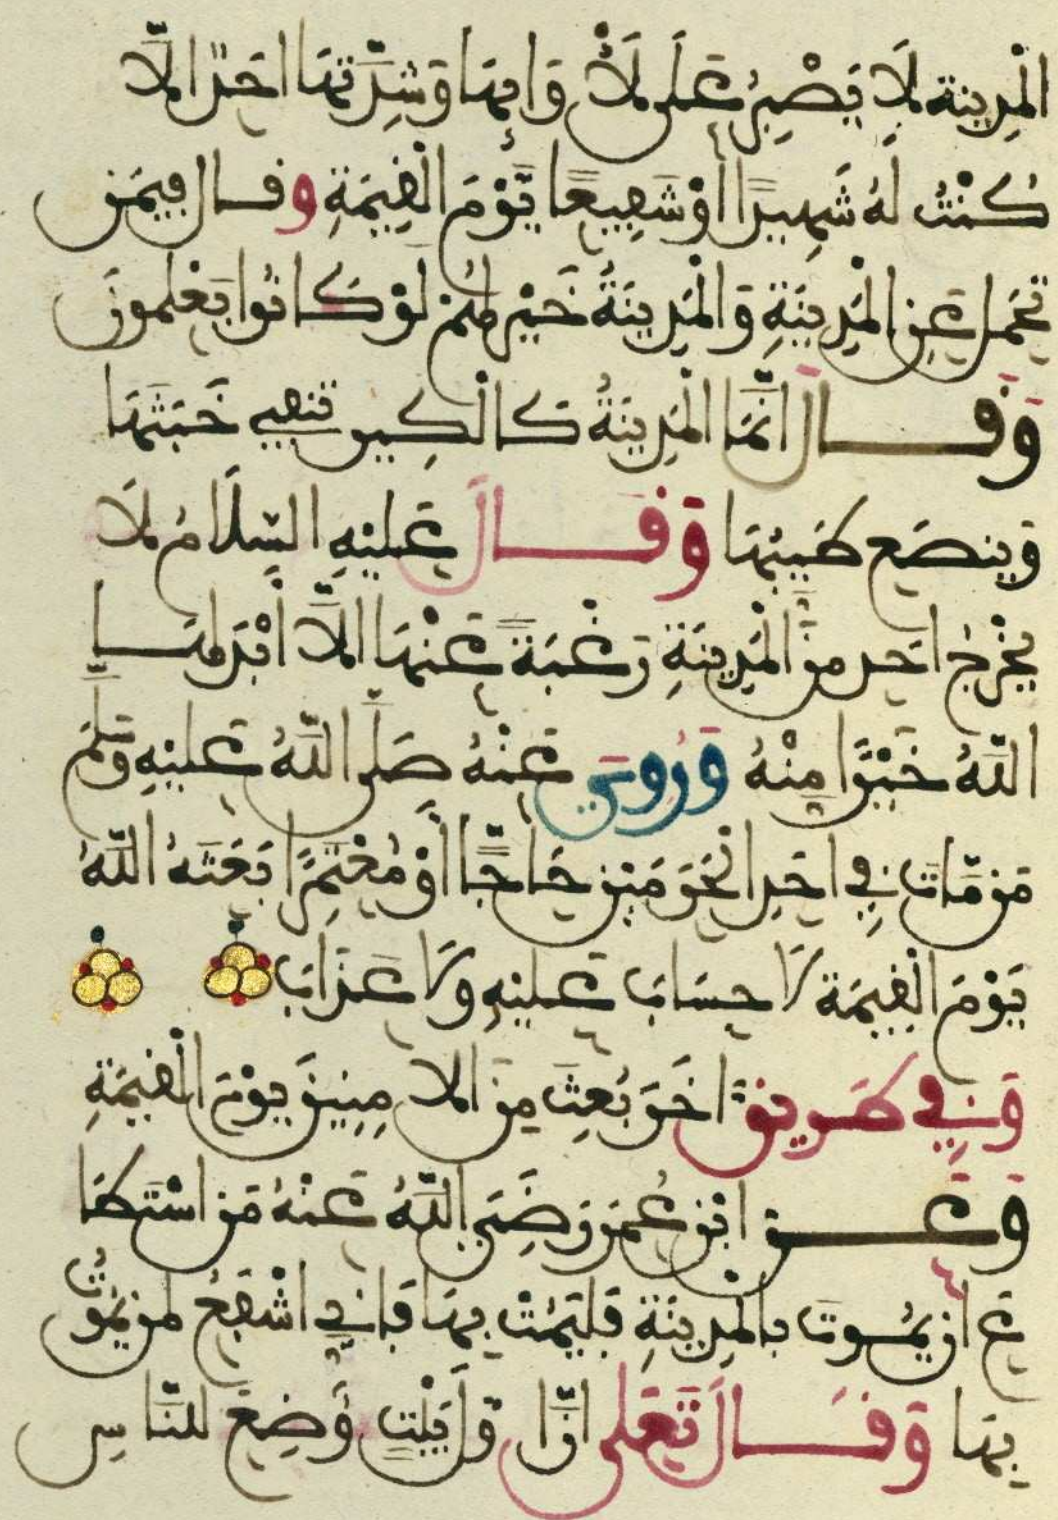 الْمَدِينَةِ لَا يَصْبِرُ عَلَى لَأْوَائِهَا وَشِدَّتِهَا أَحَدٌ إِلَّا
كُنْتُ لَهُ شَهِيدًا أَوْ شَفِيعًا يَّوْمَ الْقِيَمَةِ وقال فِيمَن
تَحَمَّلَ عَنِ الْمَدِينَةِ وَالْمَدِينَةُ خَيْرٌ لَهُمْ لَوْ كَانُوا يَعْلَمُونَ
وَقَالَ إِنَّمَا الْمَدِينَةُ كَالْكِيرِ تنفي خَبَثَهَا
وَينصَع طَيِّبُهَا وَقَالَ عَلَيْهِ السَّلَامُ لَا
يَخْرُجُ أَحَد مِنَ الْمَدِينَةِ رَغْبَةً عَنْهَا إِلَّا أَبْدَلَهَا
اللَّهُ خَيْرًا مِنْهُ وَرُوِيَ عَنْهُ صَلَّى اللَّهُ عَلَيْهِ وَسَلَّمَ
مَن مَّاتَ فِي أَحَدِ الْحَرَمَيْنِ حَاجًّا أَوْ مُعْتَمِرًا بَعَثَهُ اللَّهُ
يَوْمَ الْقِيَمَةِ لَا حِسَابَ عَلَيْهِ وَلَا عَذَابَ
وَفِي طَرِيقٍ اخَرَ بُعِثَ مِنَ الامِنِينَ يَوْمَ الْقِيَمَةِ
وَعَن ابْنِ عُمَرَ رَضِيَ اللَّهُ عَنْهُ مَنِ اسْتَطَا
عَ أَن يَمُوتَ بِالْمَدِينَةِ فَلْيَمُتْ بِهَا فَإِنِّي أَشْفَعُ لِمَن يَمُوتُ
بِهَا وَقَالَ تَعَلَى إِنَّ أَوَّلَ بَيْتٍ وُضِعَ لِلنَّاسِ